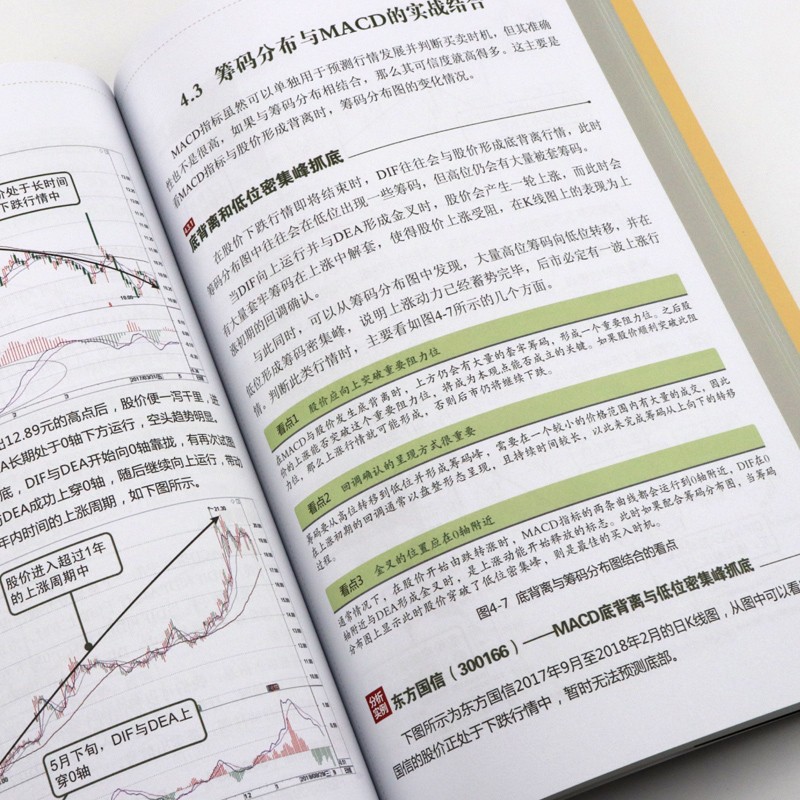 价处于长时间
下跌行情中
12.89元的高点后，股价便一泻千里，
A长期处于0轴下方运行，空头趋势明显。
底，DIF与DEA开始向0轴靠拢，有再次试图
与DEA成功上穿0轴，随后继续向上运行，带动
年内时间的上涨周期，如下图所示。
21.30
股价进入超过1年
的上涨周期中
5月下旬，DIF与DEA上
穿0轴
4.3 筹码分布与MACD的实战结合
MACD指标虽然可以单独用于预测行情发展并判断买卖时机，但其准确
性也不是很高，如果与筹码分布相结合，那么其可信度就高得多。这主要是
看MACD指标与股价形成背离时，筹码分布图的变化情况。
4.3.1 底背离和低位密集峰抓底
在股价下跌行情即将结束时，DIF往往会与股价形成底背离行情，此时
筹码分布图中往往会在低位出现一些筹码，但高位仍会有大量被套筹码。
当DIF向上运行并与DEA形成金叉时，股价会产生一轮上涨，而此时会
有大量套牢筹码在上涨中解套，使得股价上涨受阻，在K线图上的表现为上
涨初期的回调确认。
与此同时，可以从筹码分布图中发现，大量高位筹码向低位转移，并在
低位形成筹码密集峰，说明上涨动力已经蓄势完毕，后市必定有一波上涨行
情。判断此类行情时，主要看如图4-7所示的几个方面。
看点1 股价应向上突破重要阻力位
在MACD与股价发生底背离时，上方仍会有大量的套牢筹码，形成一个重要阻力位。之后股
价的上涨能否突破这个重要阻力位，将成为本观点能否成立的关键。如果股价顺利突破此阻
力位，那么上涨行情就可能形成，否则后市仍将继续下跌。
看点2 回调确认的呈现方式很重要
筹码要从高位转移到低位并形成筹码峰，需要在一个较小的价格范围内有大量的成交，因此
在上涨初期的回调通常以盘整形态呈现，且持续时间较长，以此来完成筹码从上向下的转移
过程。
看点3 金叉的位置应在0轴附近
通常情况下，在股价开始由跌转涨时，MACD指标的两条曲线都会运行到0轴附近，DIF在0
轴附近与DEA形成金叉时，是上涨动能开始释放的标志。此时如果配合筹码分布图，当筹码
分布图上显示此时股价穿破了低位密集峰，则是最佳的买入时机。
图4-7 底背离与筹码分布图结合的看点
分析实例 东方国信（300166）——MACD底背离与低位密集峰抓底
下图所示为东方国信2017年9月至2018年2月的日K线图，从图中可以看
国信的股价正处于下跌行情中，暂时无法预测底部。